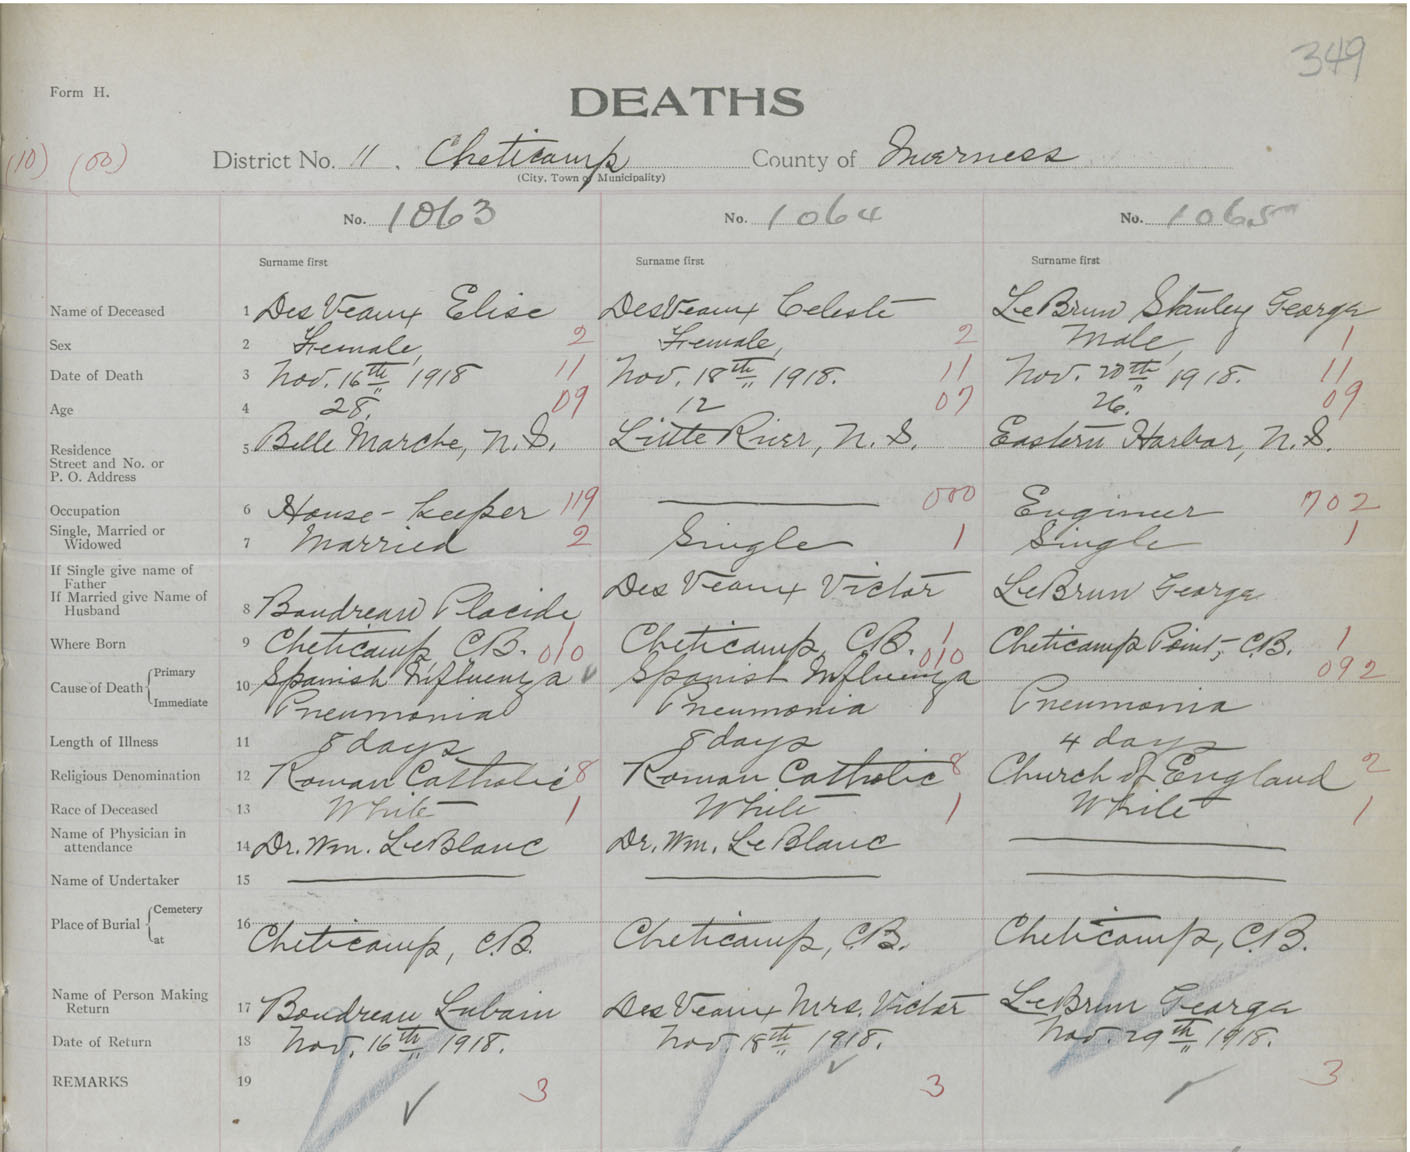 349
Form H.
DEATHS
(10) (00)
District No. 11. Cheticamp County of Inverness
(City, Town or Municipality)
No. 1063 No. 1064 No. 1065
Surname first Surname first Surname first
Name of Deceased 1 DesVeaux Elise DesVeaux Celeste LeBrun Stanley George
Sex 2 Female, 2 Female, 2 Male, 1
Date of Death 3 Nov. 16th 1918 11 Nov. 18th 1918. 11 Nov. 20th 1918. 11
Age 4 28. 09 12 07 26. 09
Residence
Street and No. or
P. O. Address 5 Belle Marche, N.S. Little River, N.S. Eastern Harbor, N.S.
Occupation 6 House-keeper 119 000 Engineer 702
Single, Married or
Widowed 7 Married 2 Single 1 Single 1
If Single give name of
Father
If Married give Name of
Husband 8 Boudreau Placide DesVeaux Victor LeBrun George
Where Born 9 Cheticamp C.B. 1 Cheticamp, C.B. 1 Cheticamp Point, C.B. 1
010 010 092
Cause of Death Primary 10 Spanish Influenza Spanish Influenza
Immediate Pneumonia Pneumonia Pneumonia
Length of Illness 11 8 days 8 days 4 days
Religious Denomination 12 Roman Catholic 8 Roman Catholic 8 Church of England 2
Race of Deceased 13 White 1 White 1 White 1
Name of Physician in
attendance 14 Dr. Wm. LeBlanc Dr. Wm. LeBlanc
Name of Undertaker 15
Place of Burial Cemetery
at 16 Cheticamp, C.B. Cheticamp, C.B. Cheticamp, C.B.
Name of Person Making
Return 17 Boudreau Lubain DesVeaux Mrs. Victor LeBrun George
Date of Return 18 Nov. 16th 1918. Nov. 18th 1918. Nov. 29th 1918.
REMARKS 19 3 3 3